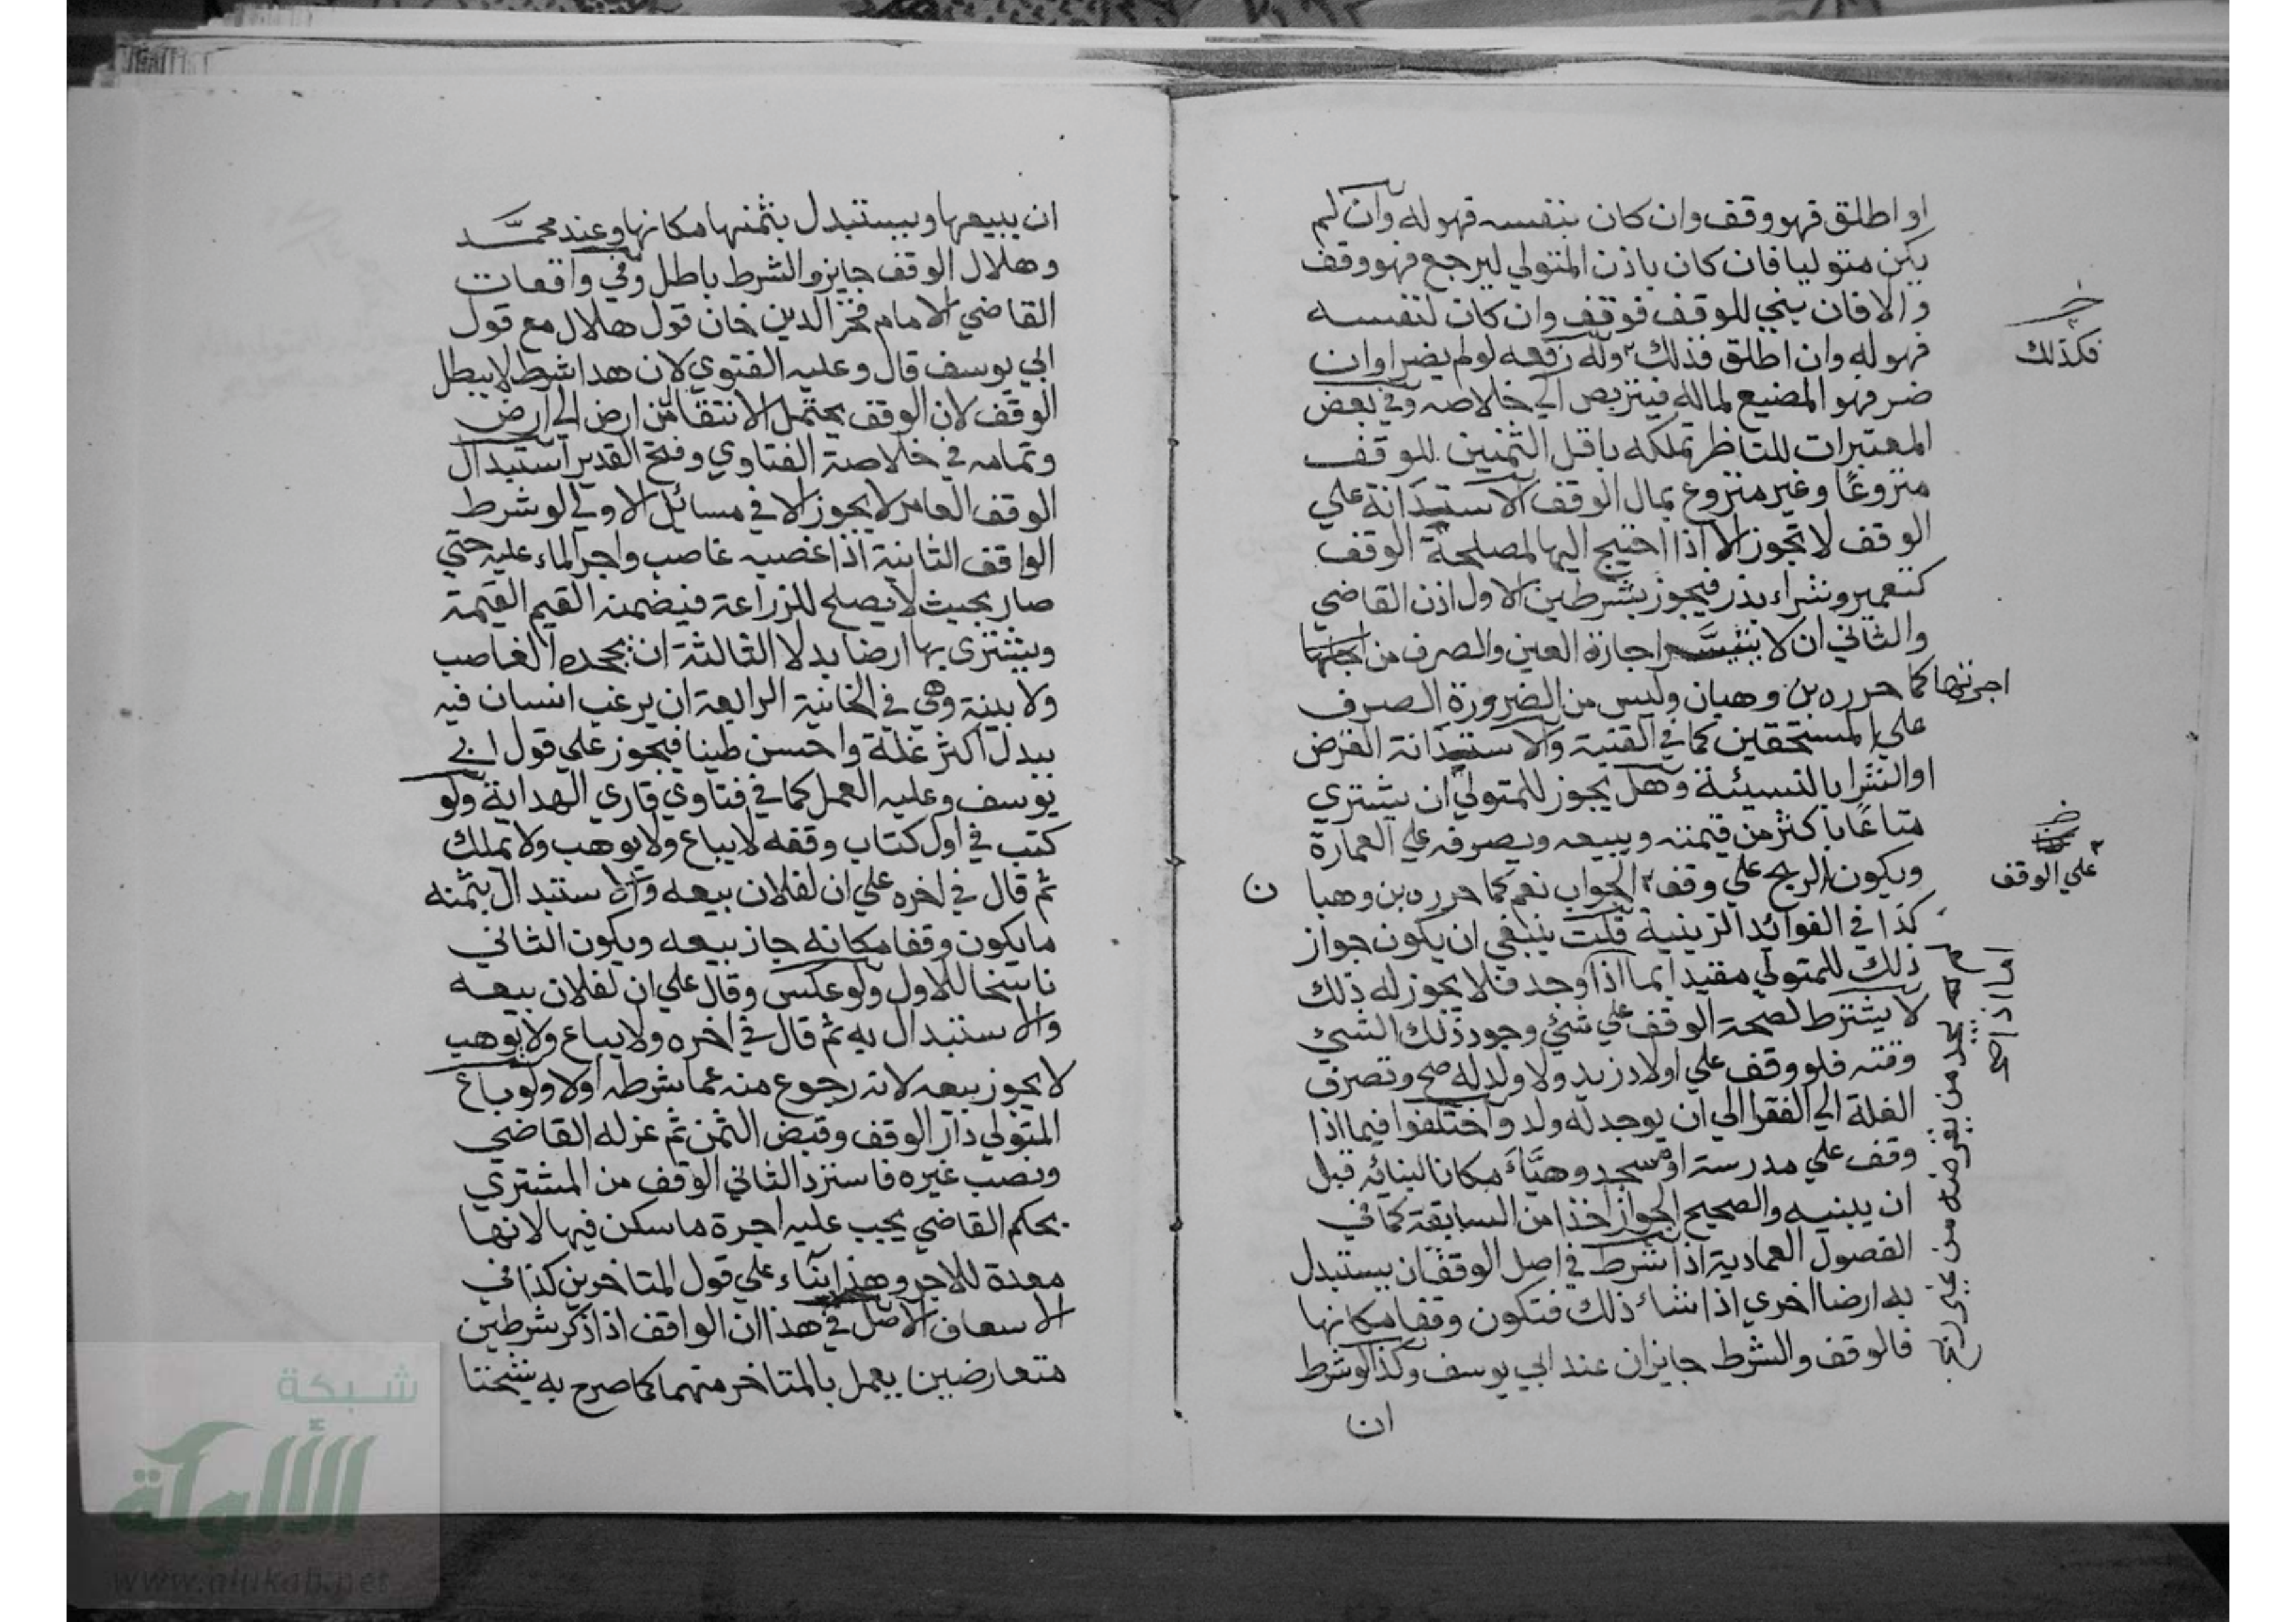 او اطلق فهو وقف وان كان بنفسه فهو له وان لم
يكن متوليا فان كان باذن المتولي ليرجع فهو وقف
والا فان بني للوقف فوقف وان كان لنفسه
فهو له وان اطلق فذلك وله رفعه لو لم يضر وان
ضر فهو المضيع لماله فيتربص الي خلاصه وفي بعض
المعتبرات للناظر تملكه باقل الثمنين للوقف
منزوعًا وغير منزوع بمال الوقف الاستدانة علي
الوقف لا تجوز الا اذا احتيج اليها لمصلحة الوقف
كتعمير وشراء بذر فيجوز بشرطين الاول اذن القاضي
والثاني ان لا يتيسر اجازة العين والصرف من
اجرتها كما حرره بن وهبان وليس من الضرورة الصرف
علي المستحقين كما في القنية والاستدانة القرض
او الشرا بالنسيئة وهل يجوز للمتولي ان يشتري
متاعًا باكثر من قيمته ويبيعه ويصرفه علي العمارة
ويكون الربح علي وقف الجواب نعم كما حرره بن وهبا
ن
كذا في الفوائد الزينية قلت ينبغي ان يكون جواز
ذلك للمتولي مقيد ابما اذا وجد فلا يجوز له ذلك
لا يشترط لصحة الوقف علي شيء وجود ذلك الشيء
وقته فلو وقف علي اولاد زيد ولا ولد له صح وتصرف
الغلة الي الفقرا الي ان يوجد له ولد واختلفوا فيما اذا
وقف علي مدرسة او مسجد وهيَّأ مكانا لبنائه قبل
ان يبنيه والصحيح الجواز اخذا من السابقة كما في
الفصول العمادية اذا شرط في اصل الوقف ان يستبدل
به ارضا اخري اذا شاء ذلك فتكون وقفا مكانها
فالوقف والشرط جايزان عند ابي يوسف وكذا لو شرط
ان
فكذلك
علي الوقف
ان يبيعها ويستبدل بثمنها مكانها وعند محمَّد
وهلال الوقف جايز والشرط باطل وفي واقعات
القاضي الامام فخر الدين خان قول هلال مع قول
ابي يوسف قال وعليه الفتوي لان هذا شرط لا يبطل
الوقف لان الوقف يحتمل الانتقال من ارض الي ارض
وتمامه في خلاصة الفتاوي وفتح القدير استبدال
الوقف العامر لا يجوز الا في مسائل الاولي لو شرط
الواقف الثانية اذا غصبه غاصب واجر الماء عليه حتي
صار بحيث لا يصلح للزراعة فيضمنه القيم القيمة
ويشتري بها ارضا بدلا الثالثة ان يجحده الغاصب
ولا بينة وهي في الخانية الرابعة ان يرغب انسان فيه
ببدل اكثر غلة واحسن طينا فيجوز علي قول ابي
يوسف وعليه العمل كما في فتاوي قاري الهداية ولو
كتب في اول كتاب وقفه لا يباع ولا يوهب ولا يملك
ثم قال في اخره علي ان لفلان بيعه والاستبدال بثمنه
ما يكون وقفا مكانه جاز بيعه ويكون الثاني
ناسخا للاول ولو عكس وقال علي ان لفلان بيعه
والاستبدال به ثم قال في اخره ولا يباع ولا يوهب
لا يجوز بيعه لانه رجوع منه عما شرطه اولا ولو باع
المتولي دار الوقف وقبض الثمن ثم عزله القاضي
ونصب غيره فاسترد الثاني الوقف من المشتري
بحكم القاضي يجب عليه اجرة ما سكن فيها لانها
معدة للاجر وهذا بناء علي قول المتاخرين كذا في
الاسعاف الاصل في هذا ان الواقف اذا ذكر شرطين
متعارضين يعمل بالمتاخر منهما كما صرح به شيخنا
شبكة
الألوكة
www.alukah.net